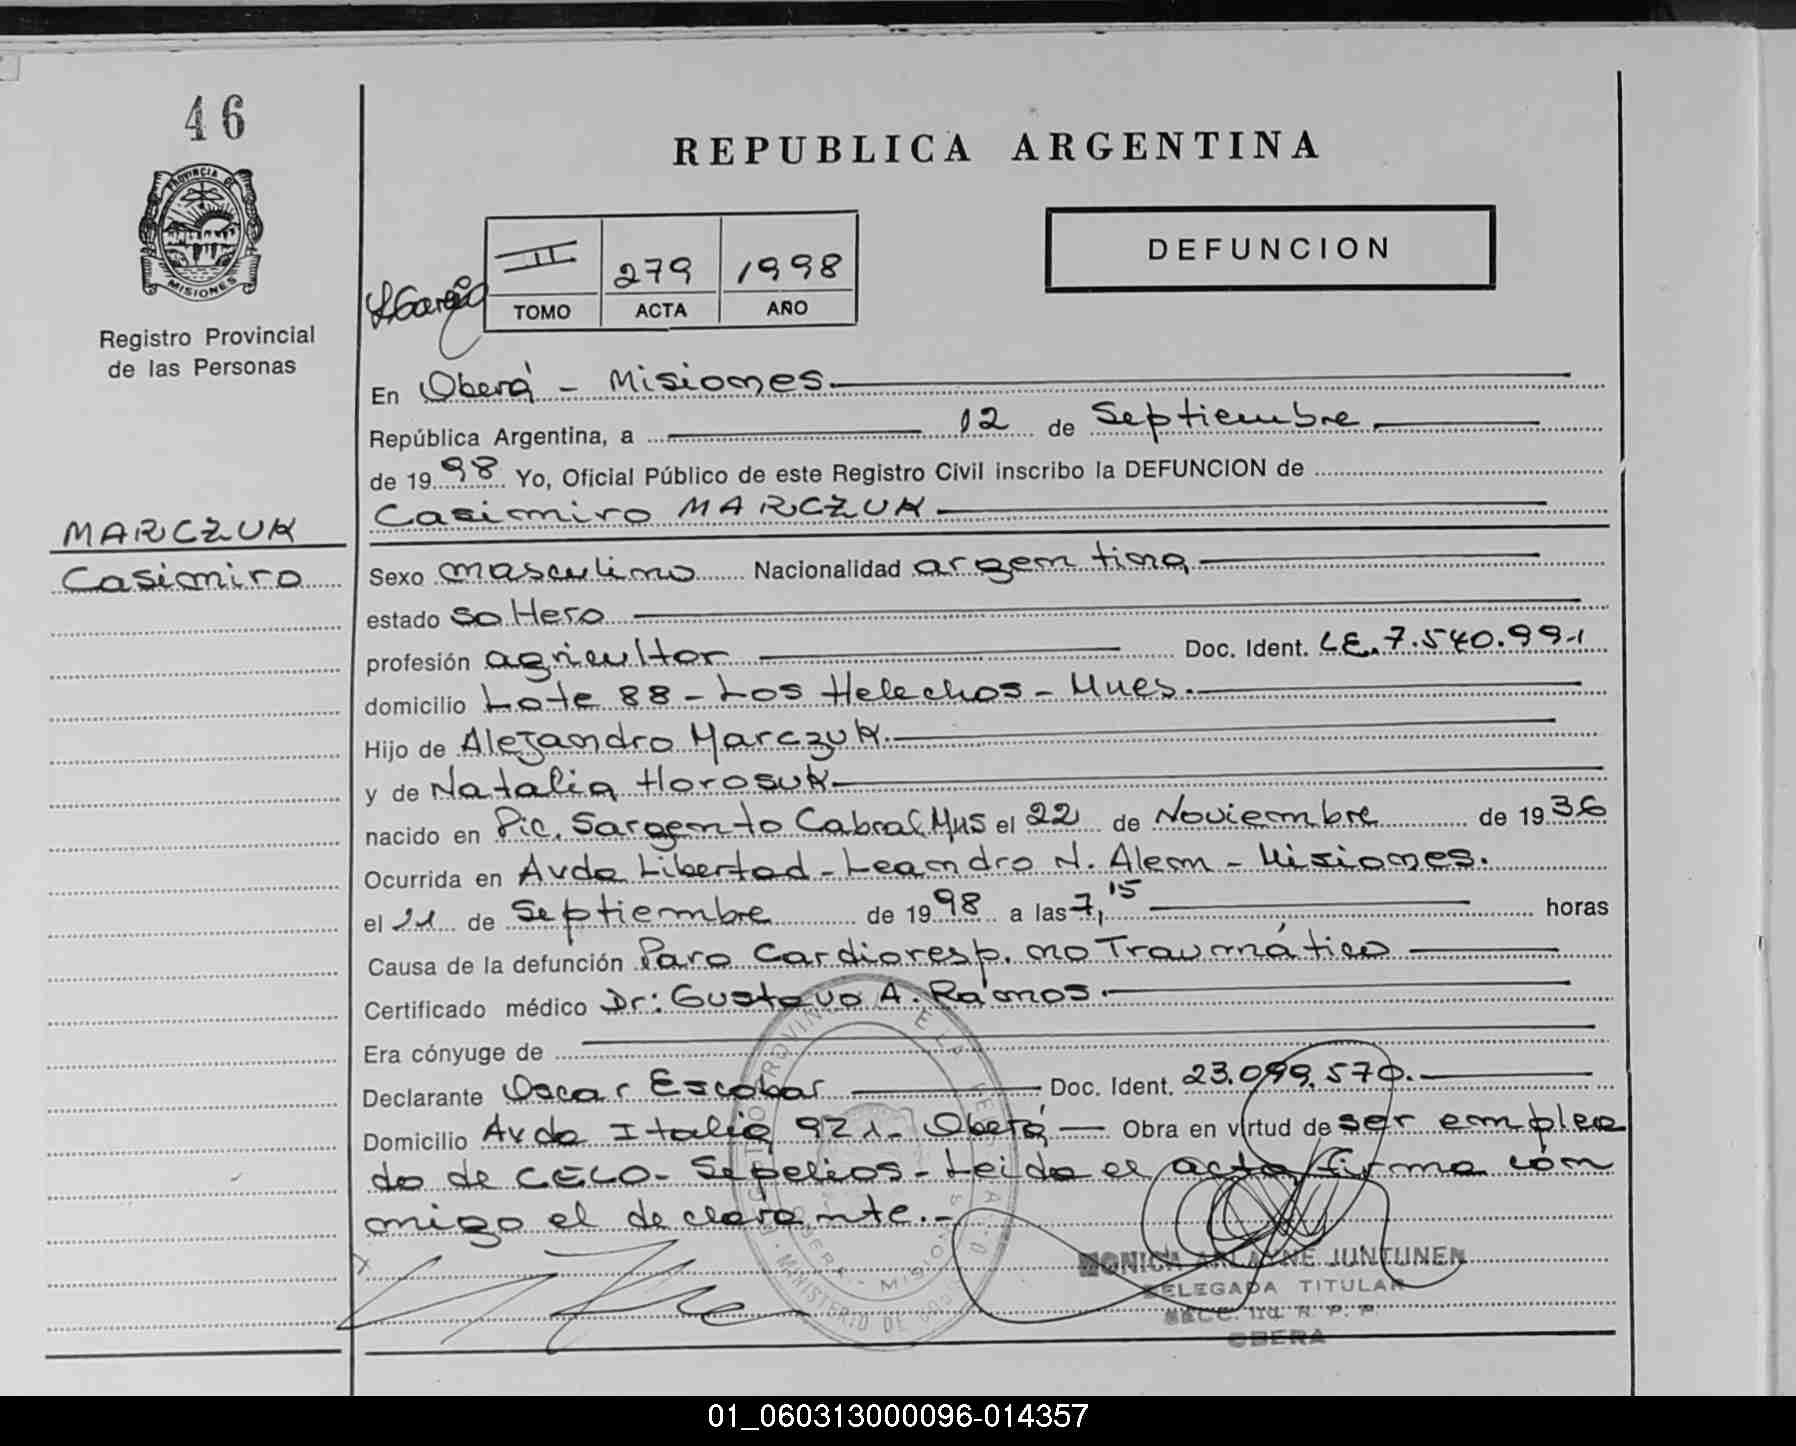 46
REPUBLICA ARGENTINA
PROVINCIA DE
MISIONES
Registro Provincial
de las Personas
II 279 1998
TOMO ACTA AÑO
DEFUNCION
En Oberá - Misiones.
República Argentina, a 12 de Septiembre
de 1998 Yo, Oficial Público de este Registro Civil inscribo la DEFUNCION de
Casimiro MARCZUK
MARCZUK
Casimiro
Sexo masculino Nacionalidad argentina
estado soltero
profesión agricultor Doc. Ident. LE. 7.540.991
domicilio Lote 88 - Los Helechos - Mnes.
Hijo de Alejandro Marczuk.
y de Natalia Horosuk
nacido en Pic. Sargento Cabral Mns el 22 de Noviembre de 1936
Ocurrida en Avda Libertad - Leandro N. Alem - Misiones.
el 11 de Septiembre de 1998 a las 7,15 horas
Causa de la defunción Paro Cardioresp. no Traumático
Certificado médico Dr: Gustavo A. Ramos.
Era cónyuge de
Declarante Oscar Escobar Doc. Ident. 23.099.570.
Domicilio Avda Italia 921 - Oberá Obra en virtud de ser emplea
do de CELO - Sepelios - Leida el acta firma con
migo el declarante.-
MONICA ARLAYNE JUNTUNEN
DELEGADA TITULAR
SECC. R. P. P.
OBERA
01_060313000096-014357